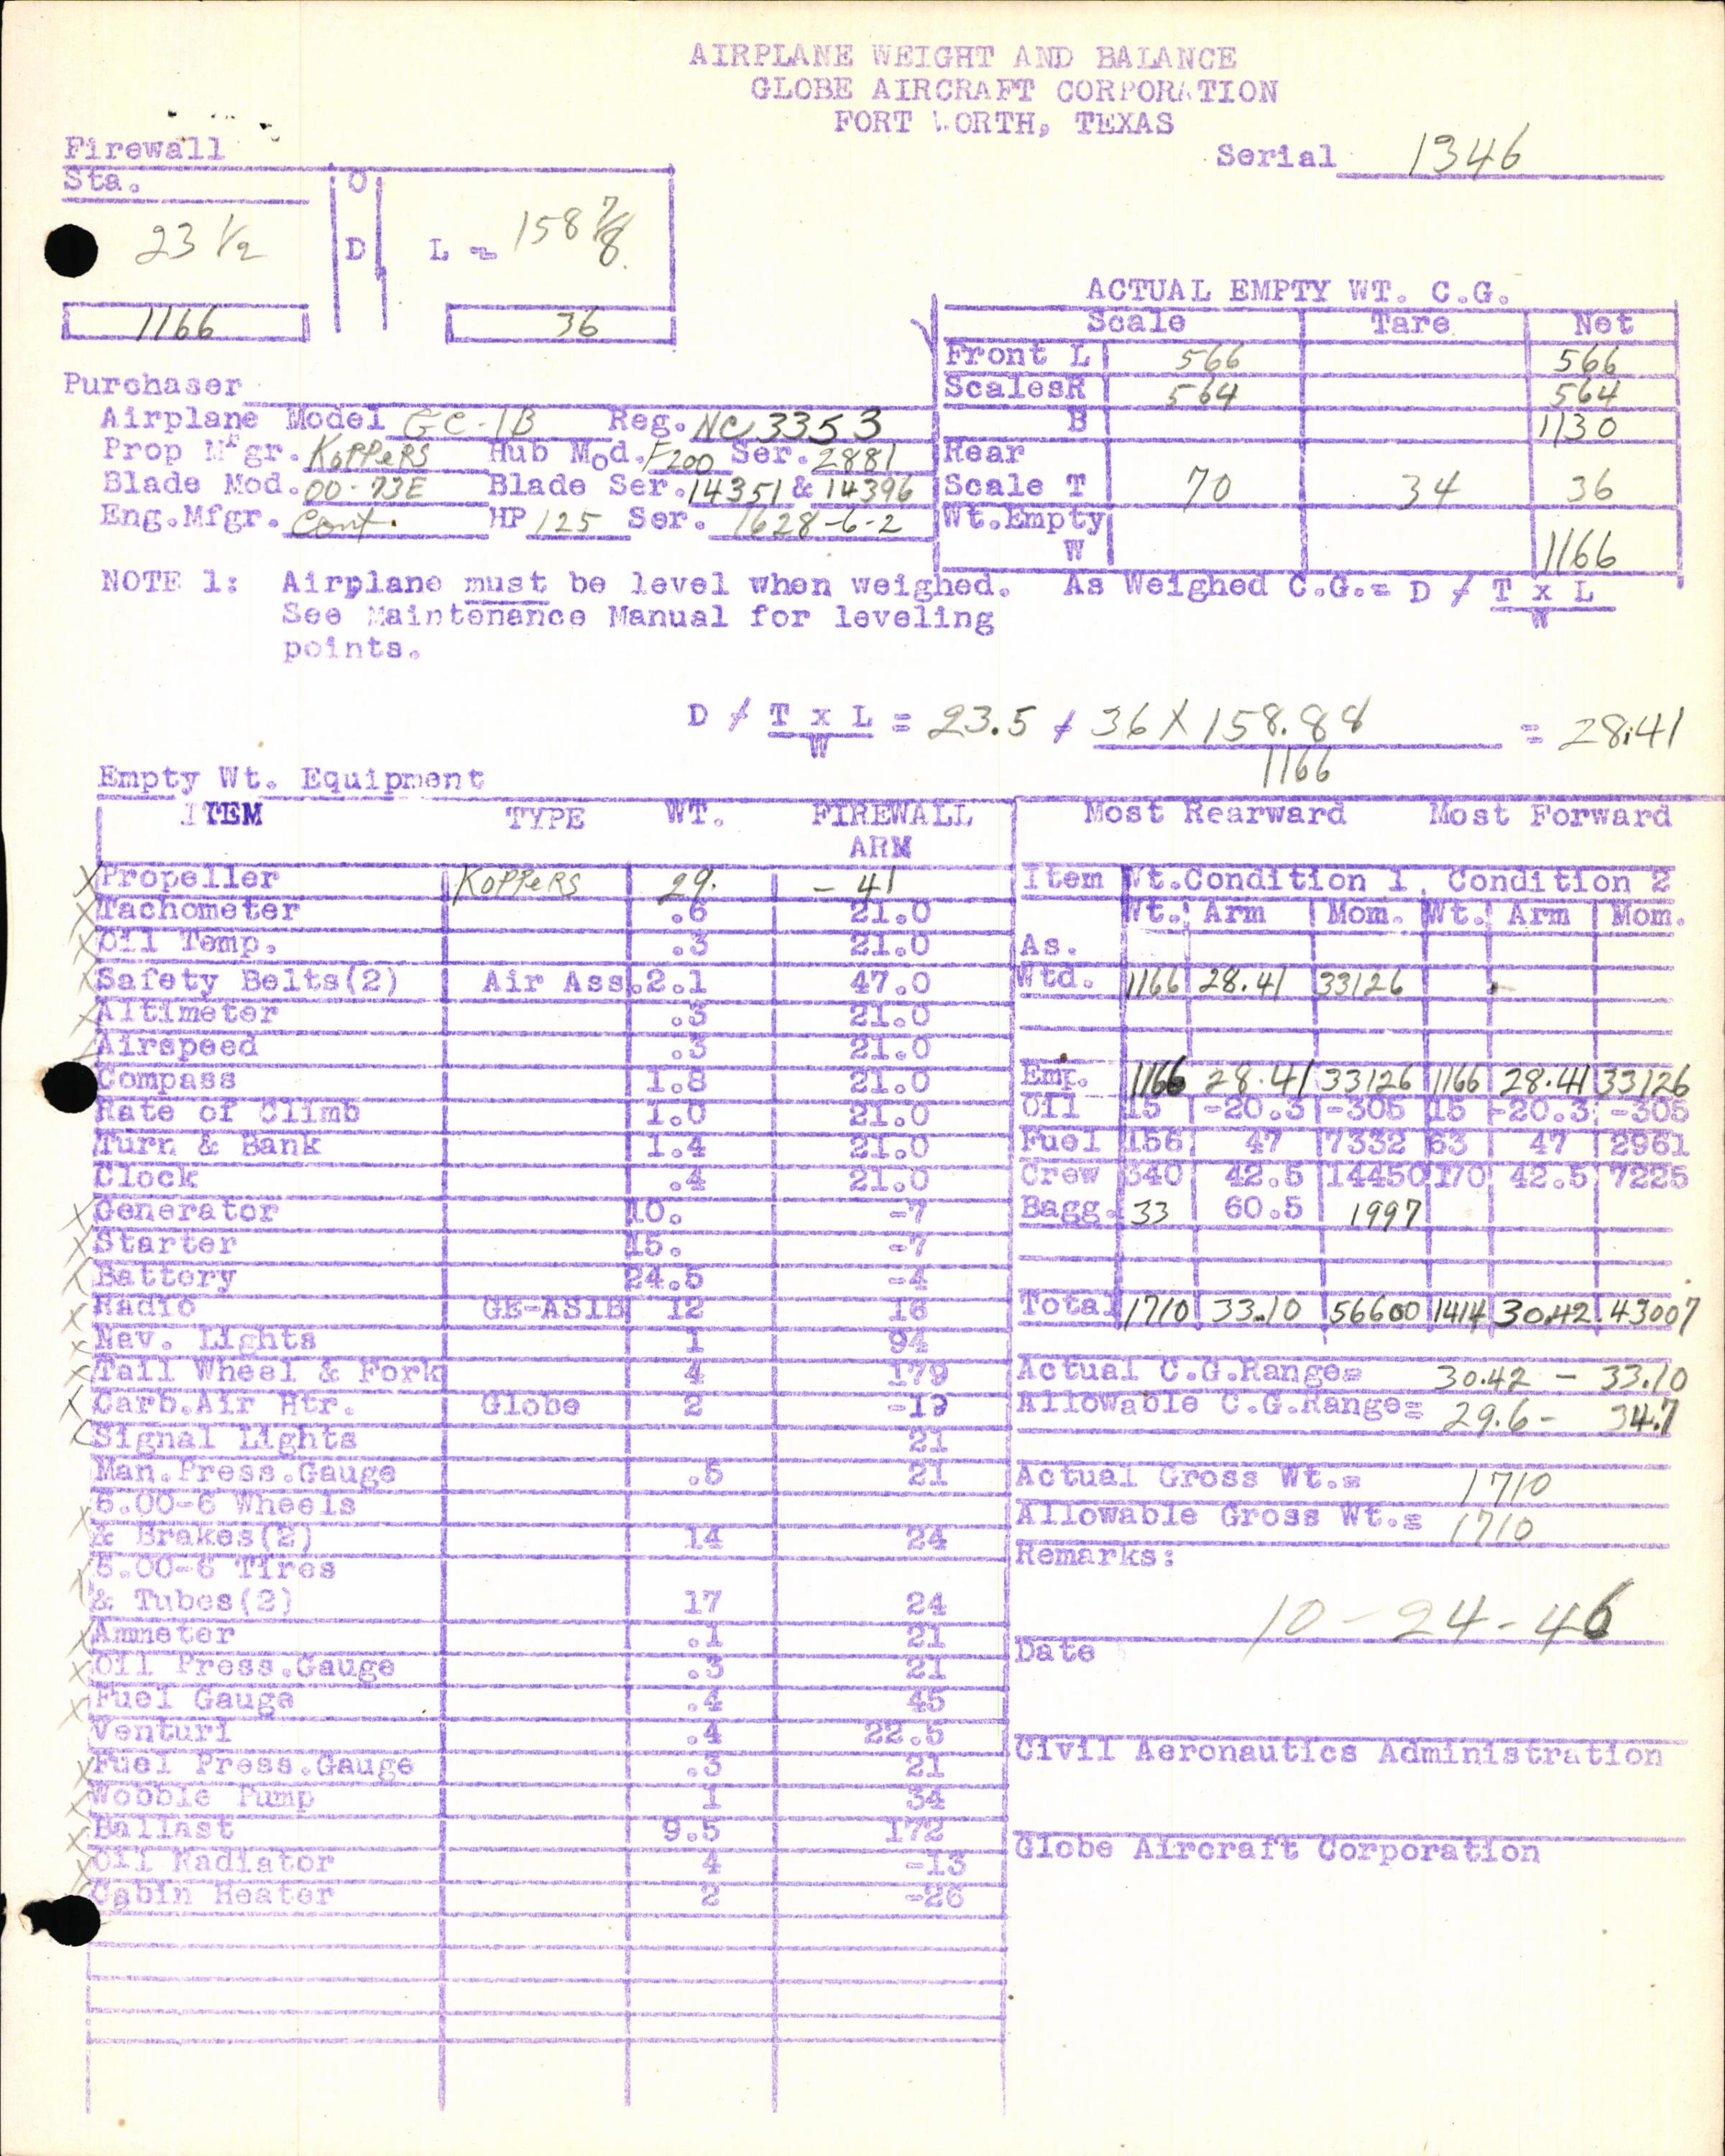 AIRPLANE WEIGHT AND BALANCE
GLOBE AIRCRAFT CORPORATION
FORT WORTH, TEXAS
Serial 1346
Firewall
Sta. O
23 1/2 D L = 158 7/8
1166 36
ACTUAL EMPTY WT. C.G.
Scale Tare Net
Front L 566 566
Scales R 564 564
B 1130
Rear
Scale T 70 34 36
Wt.Empty
W 1166
Purchaser
Airplane Model GC-1B Reg. NC 3353
Prop Mfgr. KOPPERS Hub Mod. F200 Ser. 2881
Blade Mod. 00-73E Blade Ser. 14351 & 14396
Eng.Mfgr. Cont. HP 125 Ser. 1628-6-2
NOTE 1: Airplane must be level when weighed.
See Maintenance Manual for leveling
points.
As Weighed C.G.= D / T x L
W
D / T x L = 23.5 / 36 X 158.88 = 28.41
W 1166
Empty Wt. Equipment
ITEM TYPE WT. FIREWALL
ARM
X Propeller KOPPERS 29. - 41
X Tachometer .6 21.0
X Oil Temp. .3 21.0
X Safety Belts(2) Air Ass. 2.1 47.0
X Altimeter .3 21.0
X Airspeed .3 21.0
Compass 1.8 21.0
Rate of Climb 1.0 21.0
Turn & Bank 1.4 21.0
Clock .4 21.0
X Generator 10. -7
X Starter 15. -7
X Battery 24.5 -4
X Radio GE-AS1B 12 16
X Nav. Lights 1 94
X Tail Wheel & Fork 4 179
X Carb.Air Htr. Globe 2 -19
X Signal Lights 21
Man.Press.Gauge .5 21
X 6.00-6 Wheels
& Brakes(2) 14 24
X 6.00-6 Tires
& Tubes(2) 17 24
X Ammeter .1 21
X Oil Press.Gauge .3 21
X Fuel Gauge .4 45
Venturi .4 22.5
X Fuel Press.Gauge .3 21
X Wobble Pump 1 34
X Ballast 9.5 172
X Oil Radiator 4 -13
Cabin Heater 2 -26
Most Rearward Most Forward
Item Wt.Condition 1 Condition 2
Wt. Arm Mom. Wt. Arm Mom.
As.
Wtd. 1166 28.41 33126
Emp. 1166 28.41 33126 1166 28.41 33126
Oil 15 -20.3 -305 15 -20.3 -305
Fuel 156 47 7332 63 47 2961
Crew 340 42.5 14450 170 42.5 7225
Bagg. 33 60.5 1997
Total 1710 33.10 56600 1414 30.42 43007
Actual C.G.Range= 30.42 - 33.10
Allowable C.G.Range= 29.6 - 34.7
Actual Gross Wt.= 1710
Allowable Gross Wt.= 1710
Remarks:
10-24-46
Date
Civil Aeronautics Administration
Globe Aircraft Corporation